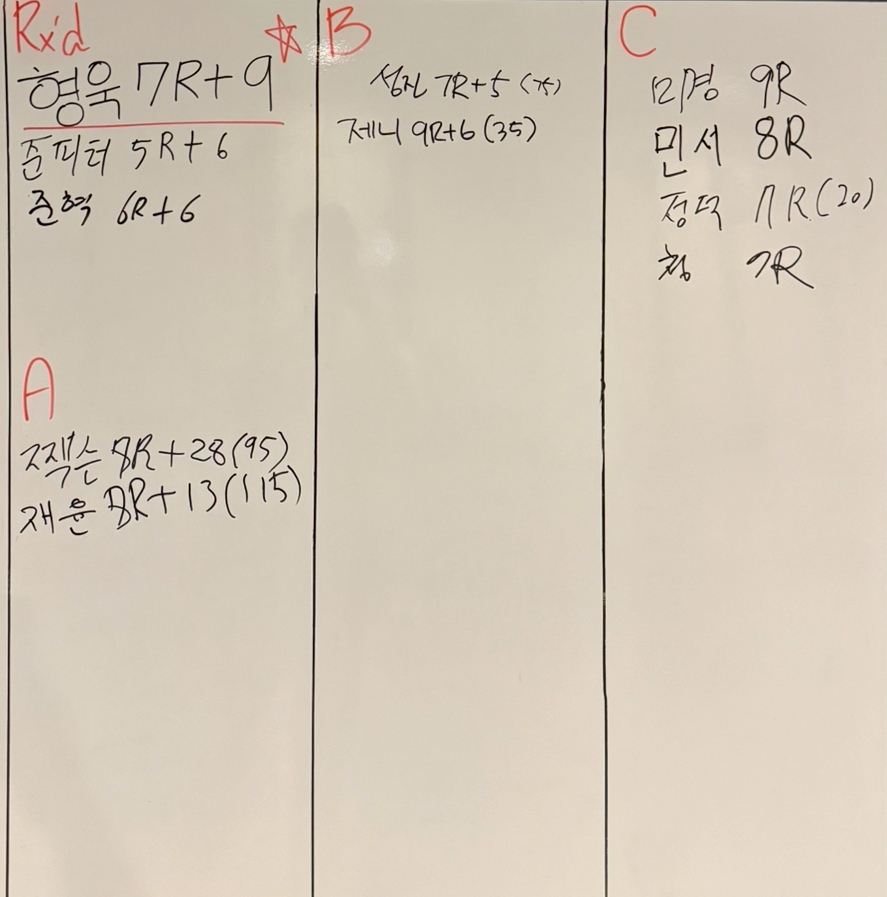 Rx'd
형욱 7R+9
준피터 5R+6
준혁 6R+6
A
8R+28(95)
재윤 8R+13(115)
B
성진 7R+5 (75)
제니 9R+6 (35)
C
미경 9R
민서 8R
정덕 7R(20)
청 7R